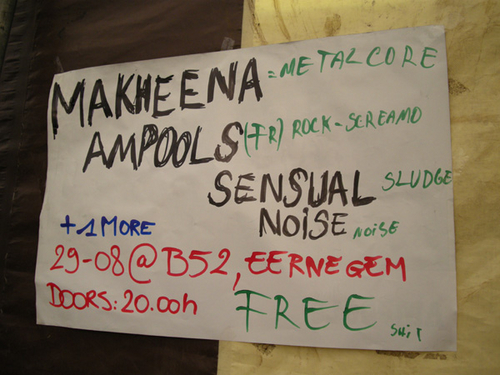 MAKHEENA = METALCORE
AMPOOLS (FR) ROCK-SCREAMO
SENSUAL SLUDGE
NOISE NOISE
+ 1 MORE
29-08 @ B52, EERNEGEM
DOORS: 20.00h FREE